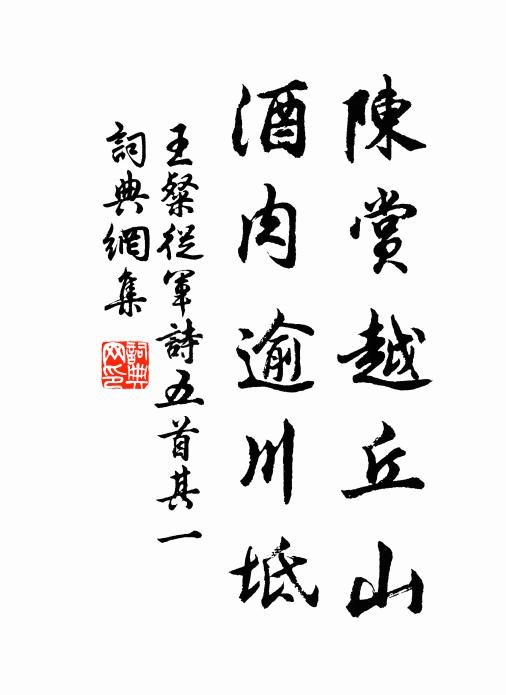 陳賞越丘山
酒肉逾川坻
王粲從軍詩五首其一
詞典網集
詞典網印